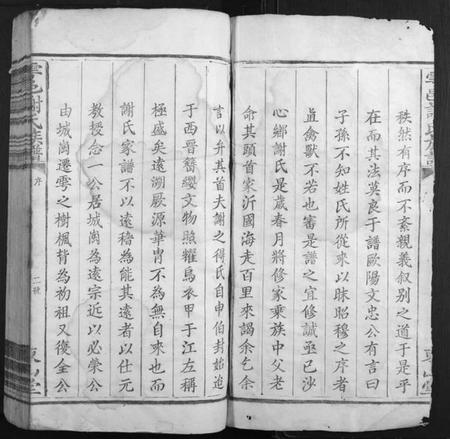 秩然有序而不紊親義叙别之道于是乎
在而其法莫良于譜歐陽文忠公有言曰
子孫不知姓氏所從來以昧昭穆之序者
直禽獸不若也審是譜之宜修誠亟已沙
心鄉謝氏是歲春月將修家乗族中父老
命其頭首家沂國海走百里來謁余乞余
言以弁其首夫謝之得氏自申伯封始迨
于西晋簪纓文物照耀烏衣甲于江左稱
極盛矣遠溯厥源華胄不為無自來也而
謝氏家譜不以遠稽為能其遠者以仕元
教授念一公居城崗為遠宗近以必榮公
由城崗遷雩之樹楓背為初祖又後全公
雩邑謝氏族譜
序
二號
東山堂